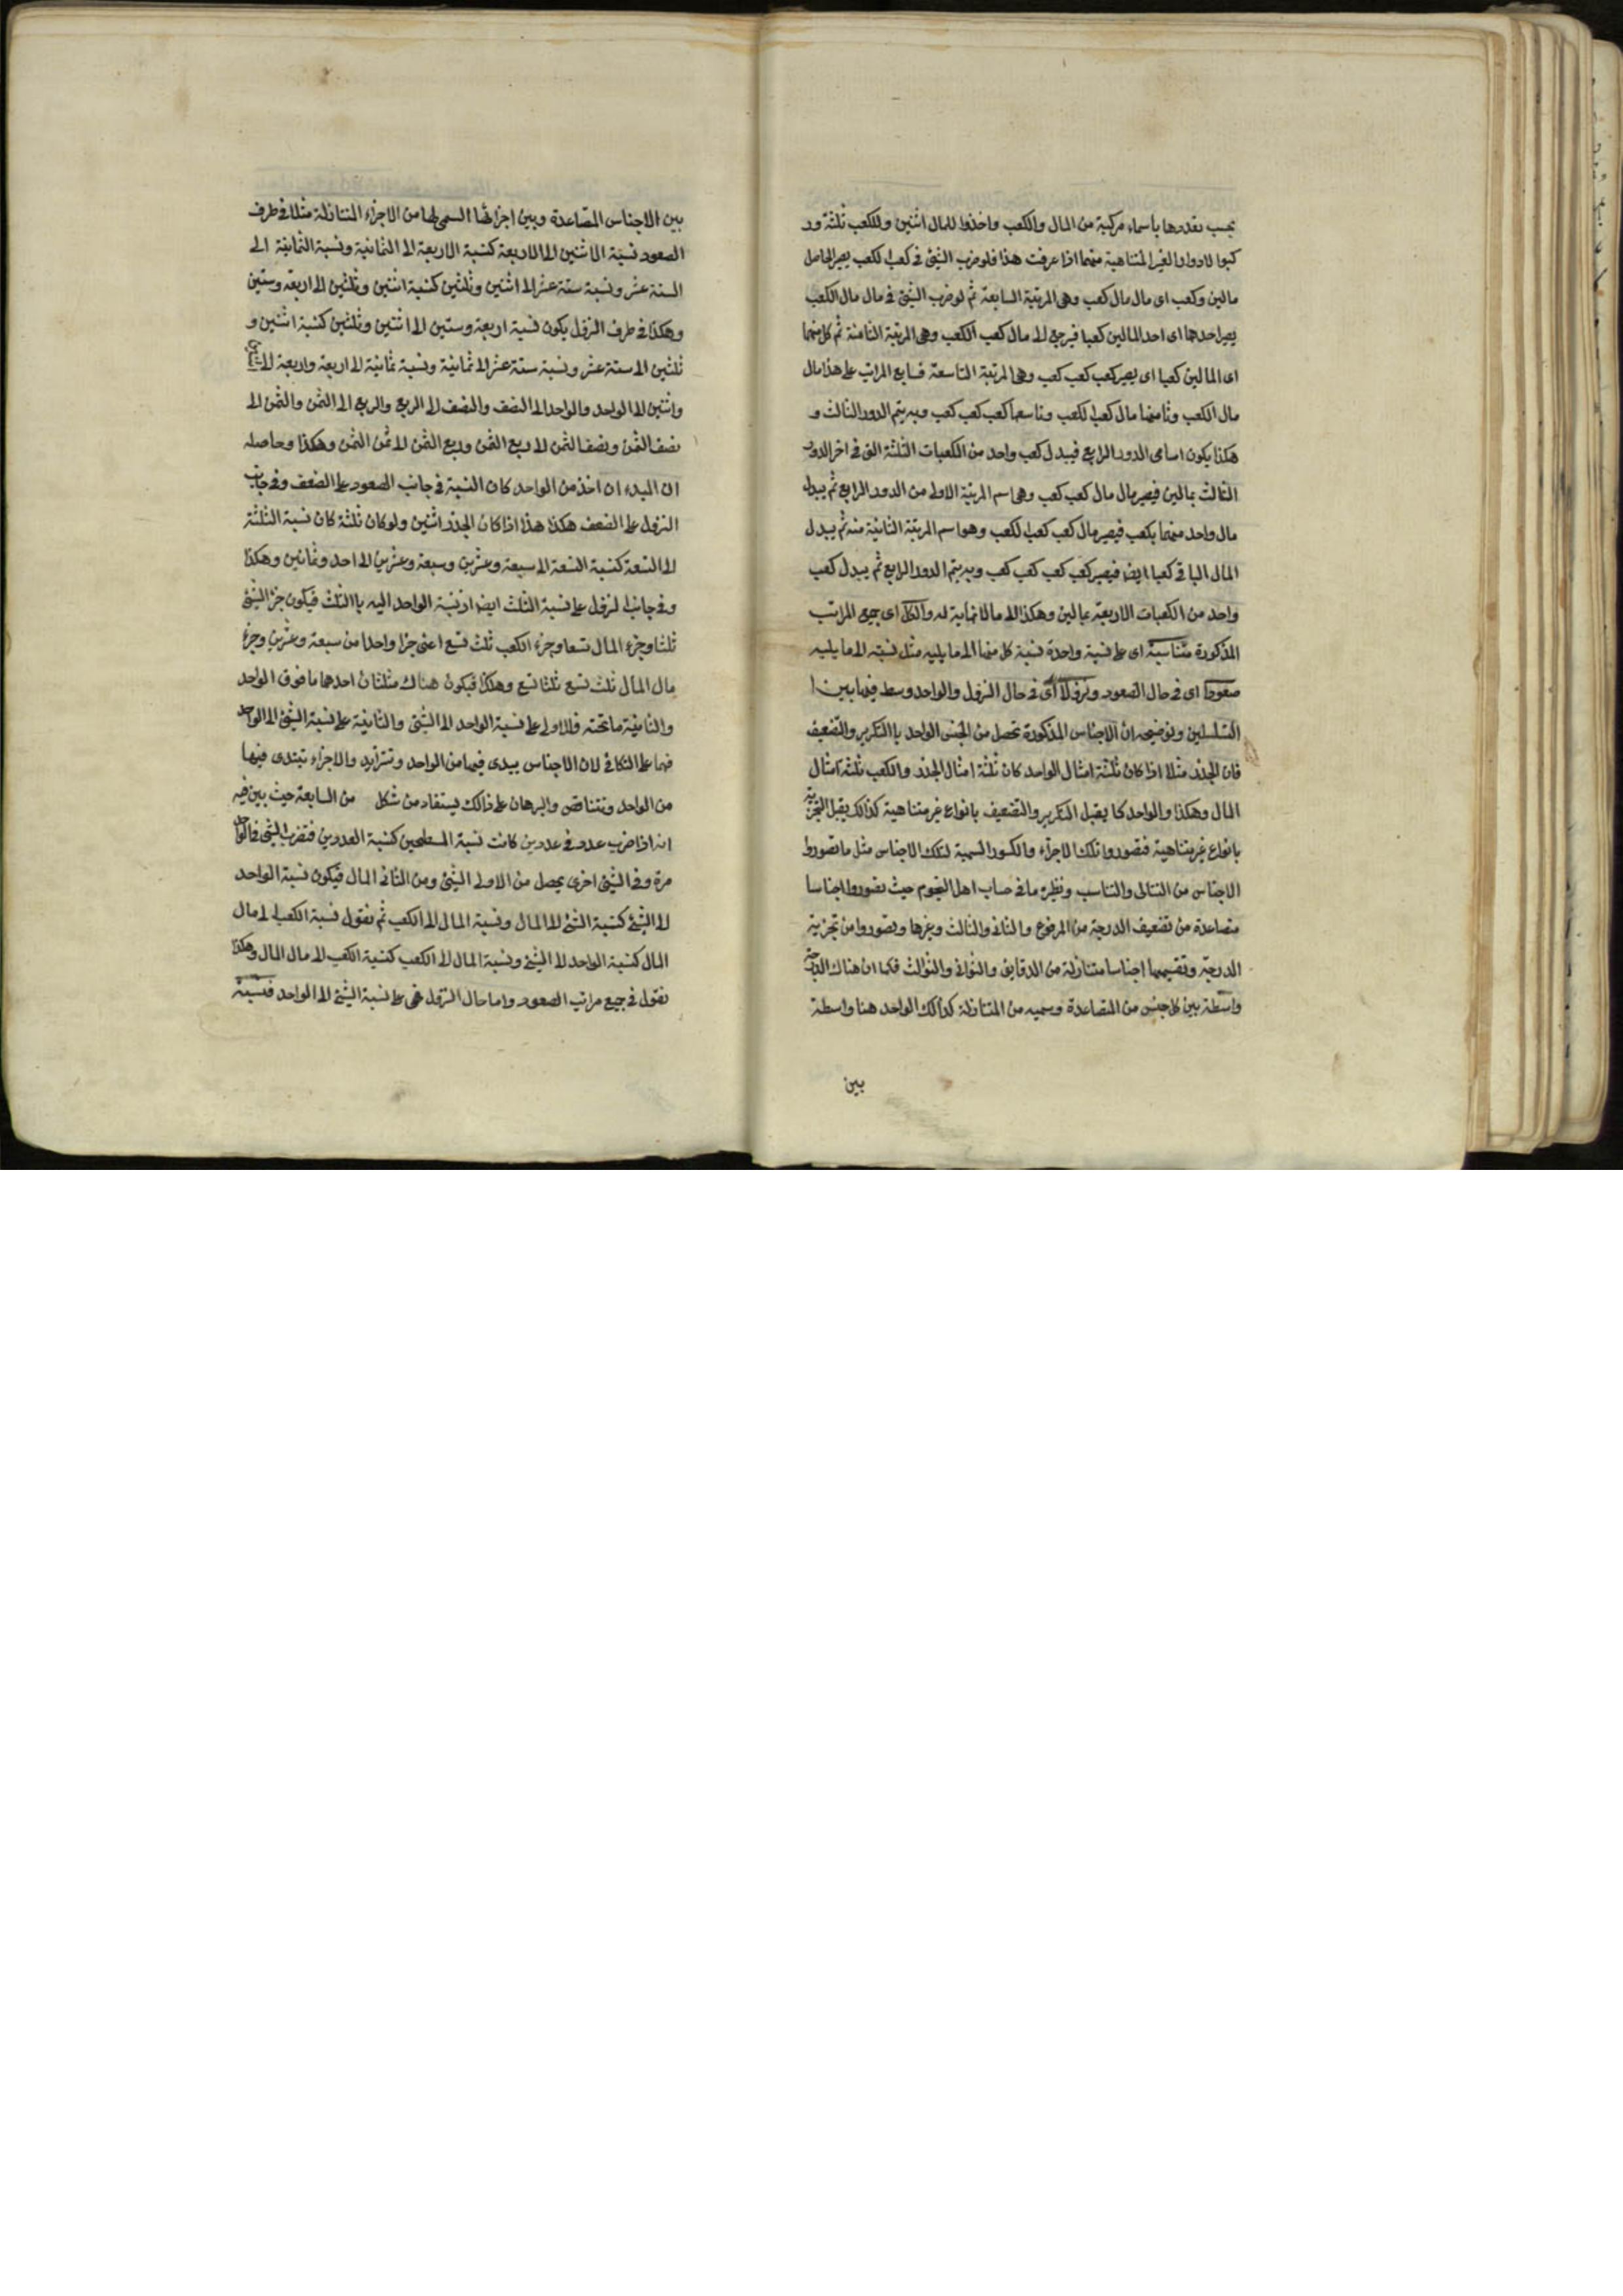 بحسب تعددها باسماء مركبة من المال والكعب واخذوا للمال اثنين وللكعب ثلثة ور
كبوا الادوار الغير المتناهية منهما اذا عرفت هذا فلو ضرب الشئ في كعب الكعب يصير الحاصل
مالين وكعب اى مال مال كعب وهى المرتبة السابعة ثم لو ضرب الشئ في مال مال الكعب
يصير احدهما اى احد المالين كعبا فيرجع الى مال كعب الكعب وهى المرتبة الثامنة ثم كل منهما
اى المالين كعبا اى يصير كعب كعب كعب وهى المرتبة التاسعة فسابع المراتب على هذا مال
مال الكعب وثامنها مال كعب الكعب وتاسعها كعب كعب كعب وبه يتم الدور الثالث و
هكذا يكون اسامى الدور الرابع فيبدل كعب واحد من الكعبات الثلثة التى في اخر الدور
الثالث بمالين فيصير مال مال كعب كعب وهى اسم المرتبة الاولى من الدور الرابع ثم يبدل
مال واحد منهما بكعب فيصير مال كعب كعب الكعب وهو اسم المرتبة الثانية منه ثم يبدل
المال الباقى كعبا ايضا فيصير كعب كعب كعب كعب وبه يتم الدور الرابع ثم يبدل كعب
واحد من الكعبات الاربعة بمالين وهكذا الى ما لا نهاية له والكل اى جميع المراتب
المذكورة متناسبة اى على نسبة واحدة نسبة كل منها الى ما يليه مثل نسبته الى ما يليه
صعودا اى في حال الصعود ونزولا اى في حال النزول والواحد وسط فيما بين ا
التسلسلين وتوضيحه ان الاجناس المذكورة تحصل من الجنس الواحد باالتكرير والتضعيف
فان الجذر مثلا اذا كان ثلثة امثال الواحد كان ثلثة امثال الجذر والكعب ثلثة امثال
المال وهكذا والواحد كما يقبل التكرير والتضعيف بانواع غير متناهية كذالك يقبل التجزية
بانواع غير متناهية فتصوروا تلك الاجزاء والكسور السمية لتلك الاجناس مثل ما تصوروا
الاجناس من التتالى والتناسب ونظيره ما في حساب اهل النجوم حيث تصوروا اجناسا
متصاعدة من تضعيف الدرجة من المرفوع والثانى والثالث وغيرها وتصوروا من تجزية
الدرجة وتقسيمها اجناسا متنازلة من الدقايق والثوانى والثوالث فكما ان هناك الدرجة
واسطة بين كل جنس من المتصاعدة وسميه من المتنازلة كذالك الواحد هنا واسطة
بين
بين الاجناس المتصاعدة وبين اجزائها السمى لها من الاجزاء المتنازلة مثلا في طرف
الصعود نسبة الاثنين الى الاربعة كنسبة الاربعة الى الثمانية ونسبة الثمانية الى
الستة عشر ونسبة ستة عشر الى اثنين وثلثين كنسبة اثنين وثلثين الى اربعة وستين
وهكذا في طرف النزول يكون نسبة اربعة وستين الى اثنين وثلثين كنسبة اثنين و
ثلثين الى ستة عشر ونسبة ستة عشر الى ثمانية ونسبة ثمانية الى اربعة واربعة الى
واثنين الى الواحد والواحد الى النصف والنصف الى الربع والربع الى الثمن والثمن الى
نصف الثمن ونصف الثمن الى ربع الثمن وربع الثمن الى ثمن الثمن وهكذا وحاصله
ان البدء ان اخذ من الواحد كان النسبة في جانب الصعود على الضعف وفي جانب
النزول على الضعف هكذا هذا اذا كان الجذر اثنين ولو كان ثلثة كان نسبة الثلثة
الى التسعة كنسبة التسعة الى سبعة وعشرين وسبعة وعشرين الى احد وثمانين وهكذا
وفي جانب النزول على نسبة الثلث ايضا اذ نسبة الواحد اليه باالثلث فيكون جزء الشئ
ثلثا وجزء المال تسعا وجزء الكعب ثلث تسع اعنى جزا واحدا من سبعة وعشرين وجزء
مال المال ثلث تسع ثلثا تسع وهكذا فيكون هناك مثلثان احدهما ما فوق الواحد
والثانية ما تحته فالاولى على نسبة الواحد الى الشئ والثانية على نسبة الشئ الى الواحد
فهما على التكافى لان الاجناس يبدى فيها من الواحد وتتزايد والاجزاء تبتدى فيها
من الواحد وتتناقص والبرهان على ذالك يستفاد من شكل من السابعة حيث بين فيه
انه اذا ضرب عدد في عددين كانت نسبة المسطحين كنسبة العددين فتضرب الشئ في الواحد
مرة وفي الشئ اخرى يحصل من الاولى الشئ ومن الثانى المال فيكون نسبة الواحد
الى الشئ كنسبة الشئ الى المال ونسبة المال الى الكعب ثم نقول نسبة الكعب الى مال
المال كنسبة الواحد الى الشئ ونسبة المال الى الكعب كنسبة الكعب الى مال المال وهكذا
نقول في جميع مراتب الصعود واما حال النزول فهى على نسبة الشئ الى الواحد فنسبة